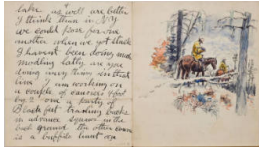 Lake as well are better
I think than in N.Y.
we could pose for one
another when we get stuck
I haven't been doing any
modling latly are you
doing any thing in that
line? I am working on
a couple of canvases
by 2 one a party of
Black feet
in advance
back ground the other
is a buffalo hunt